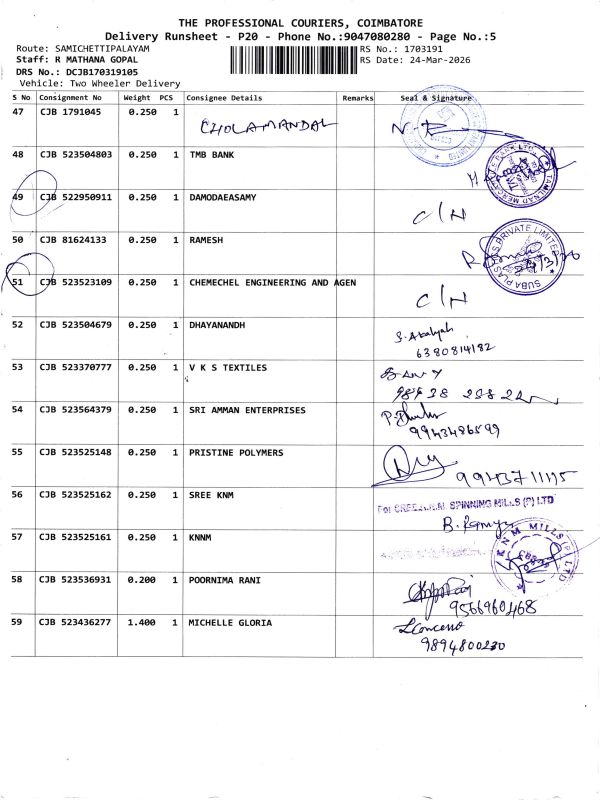 THE PROFESSIONAL COURIERS, COIMBATORE
Delivery Runsheet - P20 - Phone No.:9047080280 - Page No.:5
Route: SAMICHETTIPALAYAM RS No.: 1703191
Staff: R MATHANA GOPAL RS Date: 24-Mar-2026
DRS No.: DCJB170319105
Vehicle: Two Wheeler Delivery
S No Consignment No Weight PCS Consignee Details Remarks Seal & Signature
47 CJB 1791045 0.250 1 CHOLAMANDAL
48 CJB 523504803 0.250 1 TMB BANK
TAMILNAD MERCANTILE BANK LTD
49 CJB 522950911 0.250 1 DAMODAEASAMY C/N
50 CJB 81624133 0.250 1 RAMESH
SUBA PLAS PRIVATE LIMITED
51 CJB 523523109 0.250 1 CHEMECHEL ENGINEERING AND AGEN C/N
52 CJB 523504679 0.250 1 DHAYANANDH
6380814182
53 CJB 523370777 0.250 1 V K S TEXTILES
54 CJB 523564379 0.250 1 SRI AMMAN ENTERPRISES
9943486599
55 CJB 523525148 0.250 1 PRISTINE POLYMERS
56 CJB 523525162 0.250 1 SREE KNM
For SREE K.N.M. SPINNING MILLS (P) LTD
B. Ramya
57 CJB 523525161 0.250 1 KNNM
K N M MILLS (P) LTD
58 CJB 523536931 0.200 1 POORNIMA RANI
9566960468
59 CJB 523436277 1.400 1 MICHELLE GLORIA
9894800230